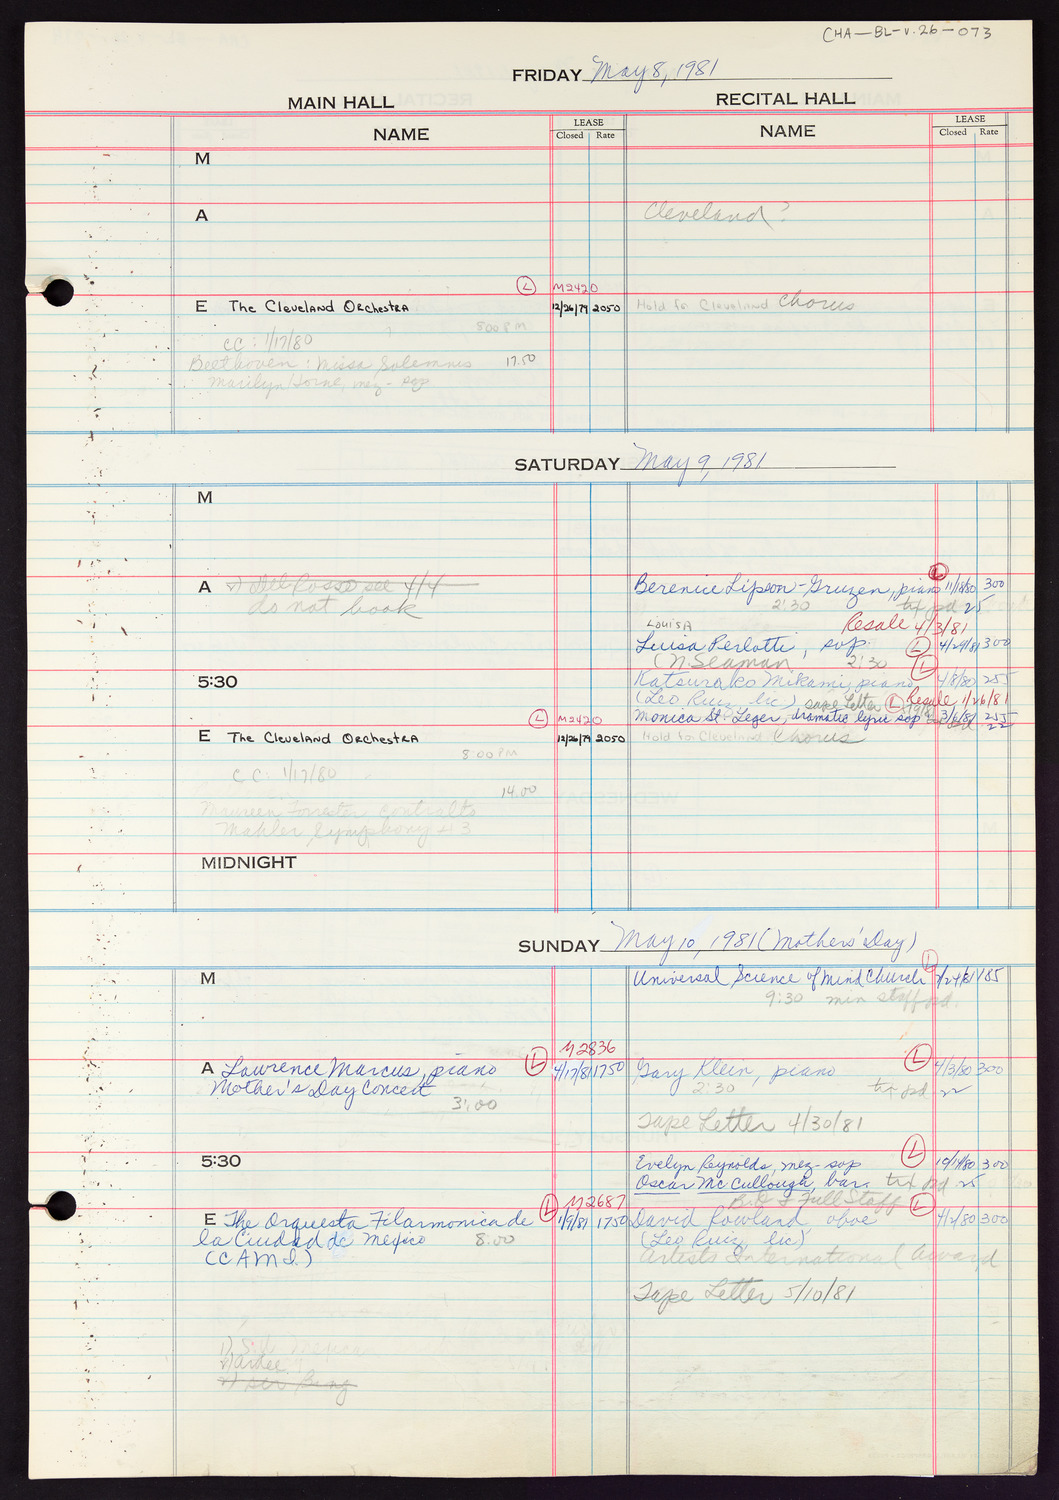 CHA-BL-v.26-073
FRIDAY May 8, 1981
MAIN HALL
RECITAL HALL
NAME
LEASE
Closed Rate
NAME
LEASE
Closed Rate
M
A
Cleveland?
L M2420
E The Cleveland Orchestra 12/26/79 2050
Hold for Cleveland Chorus
8:00 PM
CC: 1/17/80
Beethoven: Missa Solemnis 17.50
Marilyn Horne, mez-sop
SATURDAY May 9, 1981
M
A Del Rosso see 4/4
do not book
Berenice Lipson-Gruzen, piano 11/18/80 300
2:30 txt pd 25
Resale 4/3/81
Louisa
Luisa Perlotti, sop. L 4/29/81 300
(N. Seaman 2:30 L
5:30
Katsurako Mikami, piano 4/8/80 255
(Leo Ruiz, lic) tape letter L Resale 1/26/81
Monica St. Leger, dramatic lyric sop 3/6/81 255
L M2420
E The Cleveland Orchestra 12/26/79 2050
Hold for Cleveland Chorus
8:00 PM
CC: 1/17/80
14.00
Maureen Forrester, contralto
Mahler Symphony #3
MIDNIGHT
SUNDAY May 10, 1981 (Mothers' Day)
M
Universal Science of Mind Church L 2/24/81 185
9:30 min staff pd.
M2836
A Lawrence Marcus, piano L 4/17/81 1750
Mother's Day Concert
3:00
Gary Klein, piano L 4/3/80 300
2:30 txt pd 22
Tape Letter 4/30/81
5:30
Evelyn Reynolds, mez-sop L 10/14/80 300
Oscar McCullough, bar. txt pd 25
Full Staff
L M2687
E The Orquesta Filarmonica de 1/9/81 1750
la Ciudad de Mexico 8:00
(CAMI)
David Rowland, oboe L 4/2/80 300
(Leo Ruiz, lic)
Artists International (award
Tape Letter 5/10/81